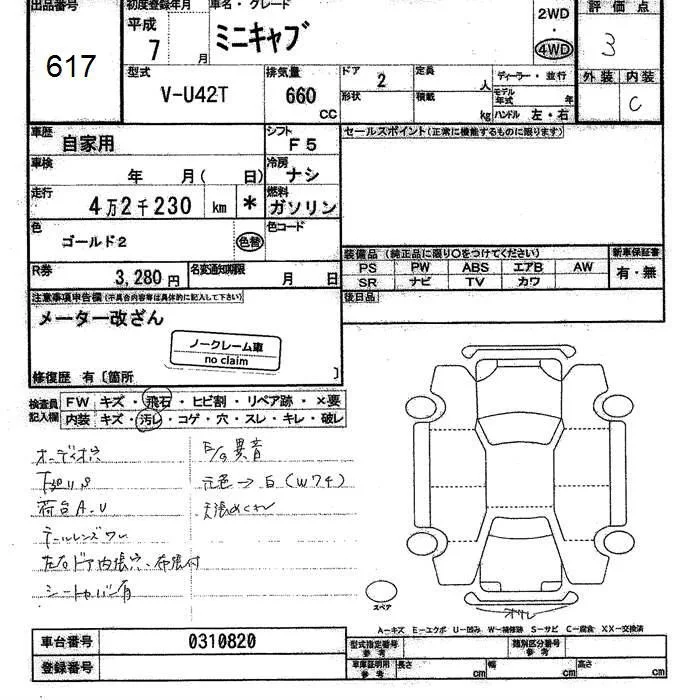 出品番号 初度登録年月 車名・グレード 評価点
617 平成 7 月 ミニキャブ 2WD 4WD 3
型式 V-U42T 排気量 660 CC ドア 2 形状 定員 人 積載 kg ディーラー・並行 モデル年式 年 ハンドル 左・右 外装 内装 C
車歴 自家用 シフト F5 セールスポイント(正常に機能するものに限ります)
車検 年 月( 日) 冷房 ナシ
走行 4万2千230 km * 燃料 ガソリン
色 ゴールド2 色替 色コード
装備品(純正品に限り○をつけてください) 新車保証書
PS PW ABS エアB AW 有・無
SR ナビ TV カワ
R券 3,280円 名変通知期限 月 日
後日品
注意事項申告欄(不具合内容等は具体的に記入して下さい)
メーター改ざん
ノークレーム車
no claim
修復歴 有〔箇所 〕
検査員記入欄 FW キズ・飛石・ヒビ割・リペア跡・×要
内装 キズ・汚レ・コゲ・穴・スレ・キレ・破レ
オーディオ穴 E/G異音
元色→白(W74)
荷台A.U 天張めくれ
テールレンズワレ
左右ドア内張穴・布張付
シートカバー有
スペア
A-キズ E-エクボ U-凹み W-補修跡 S-サビ C-腐食 XX-交換済
車台番号 0310820 型式指定番号 参考 類別区分番号 参考
登録番号 車庫証明用 参考 長さ cm 幅 cm 高さ cm